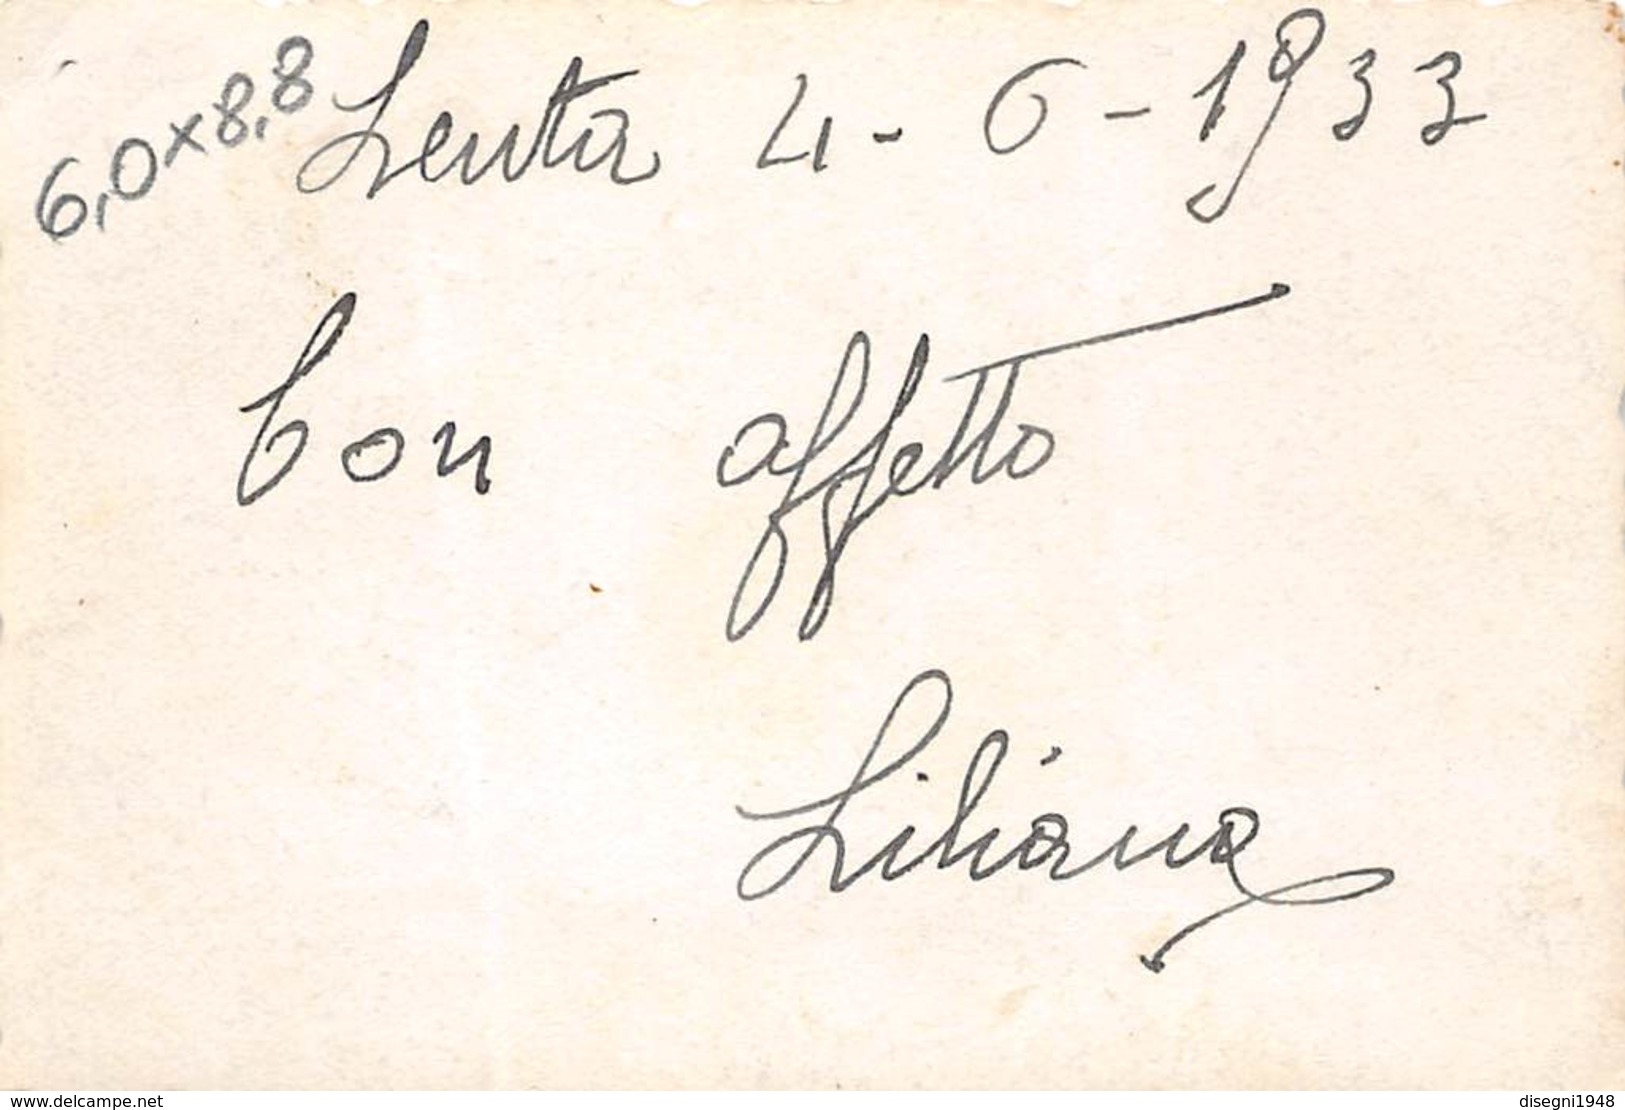 6,0x8,8
Lenta 4-6-1933
Con affetto
Liliana
www.delcampe.net
disegni1948